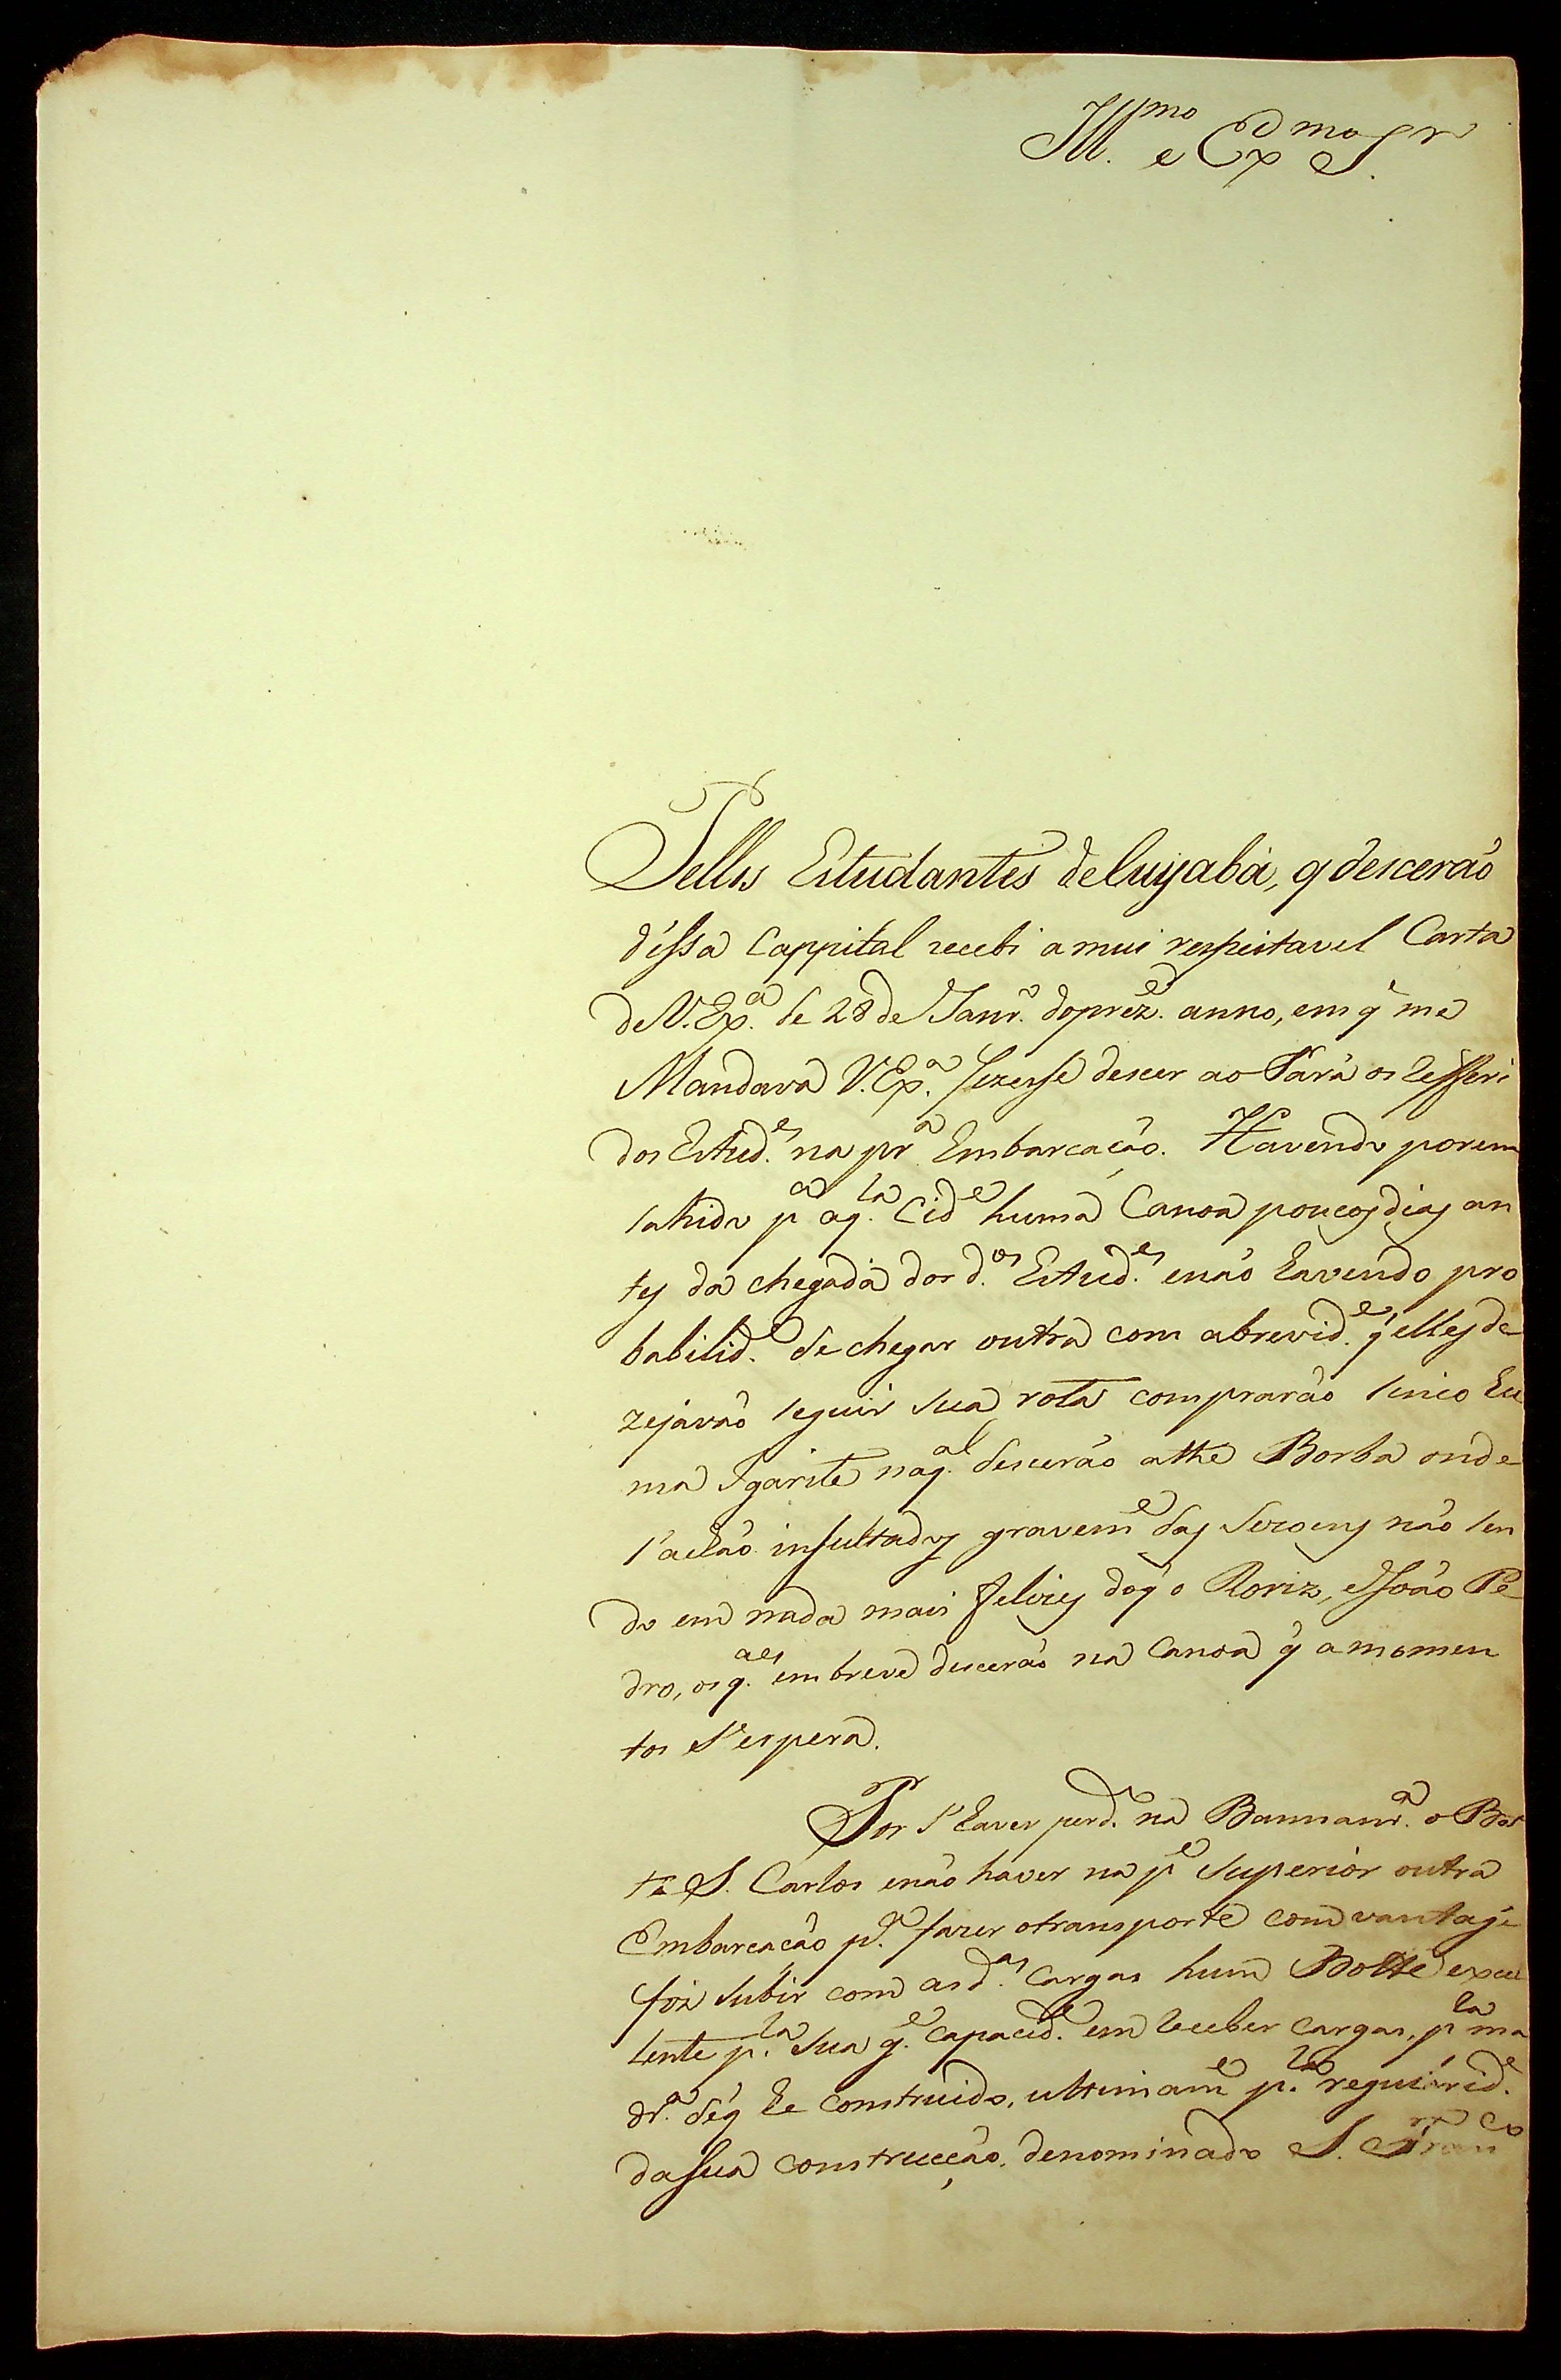 Ill.mo e Ex.mo Sr.
Pellos Estudantes de Cuyabá, q̃ descerão
d'essa Cappital recebi a mui respeitavel Carta
de V. Ex.a de 28 de Janr.o do prez.e anno, em q̃ me
Mandava V. Ex.a fezesse descer ao Pará os refferi
dos Estud.es na pr.a Embarcação. Havendo porem
sahido p.a aq.la Cid.e huma Canoa poucos dias an
tes da chegada dos d.os Estud.es e não havendo pro
babilid.e de chegar outra com a brevid.e q̃ elles de
zejavão seguir sua rota comprarão hu
ma Igarite na q.al descerão athe Borba onde
s'achão insultados gravem.e das Sezoens não sen
do em nada mais felizes do q̃ o Roriz, e João Pe
dro, os q.aes em breve descerão na Canoa q̃ a momen
tos s'espera.
Por s'haver perd.o na Bannanr.a o Bot
te S. Carlos e não haver na p.e Superior outra
Embarcação p.a fazer o transporte com vantage
foi subir com as d.as Cargas hum Botte excel
lente p.la sua g.e capacid.e em receber cargas, p.la ma
dr.a de q̃ he construido, ultimam.e p.la regularid.e
da sua construcção, denominado S. Fran.co